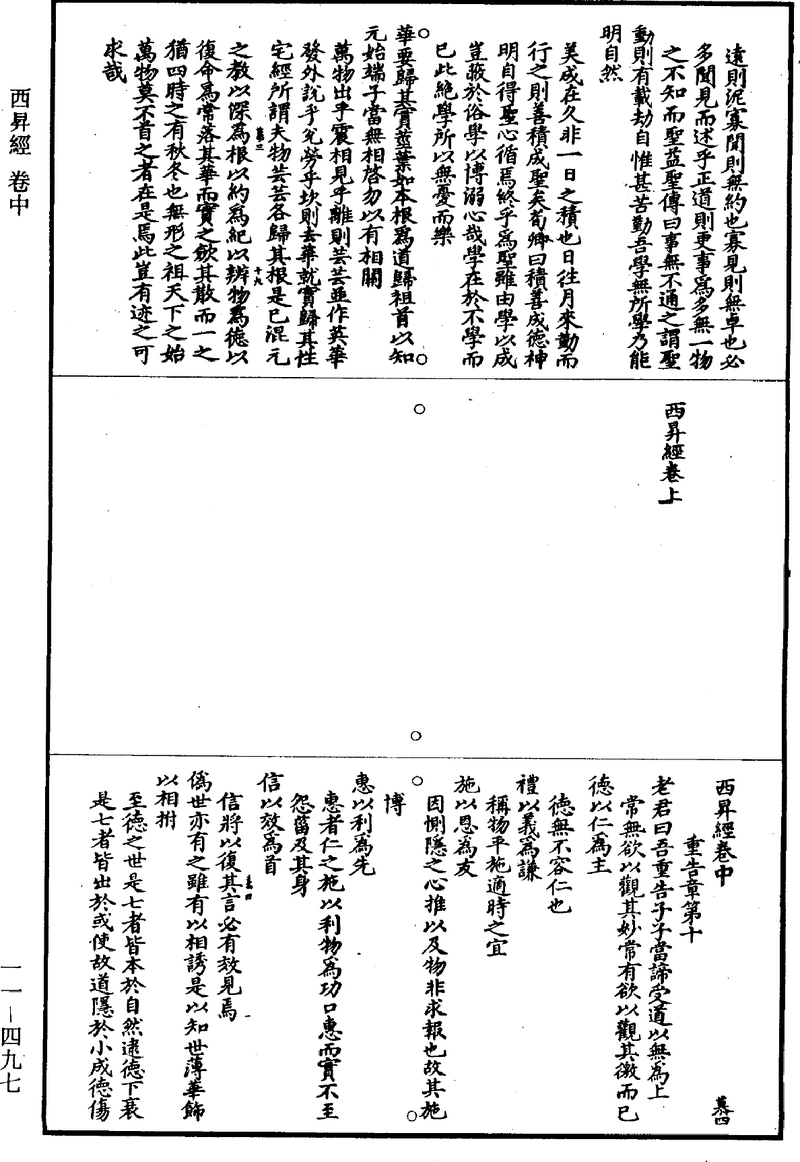 西昇經 卷中
遠則泥寡聞則無約也寡見則無卓也必
多聞見而述乎正道則更事爲多無一物
之不知而聖益聖傳曰事無不通之謂聖
動則有載劫自惟甚苦勤吾學無所學乃能
明自然
美成在久非一日之積也日往月來勤而
行之則善積成聖矣荀卿曰積善成德神
明自得聖心循焉終乎爲聖雖由學以成
豈蔽於俗學以博溺心哉學在於不學而
已此絶學所以無憂而樂
華要歸其實莖葉如本根爲道歸祖首以知
元始端子當無相啓勿以有相關
萬物出乎震相見乎離則芸芸並作英華
發外說乎兊勞乎坎則去華就實歸其性
宅經所謂夫物芸芸各歸其根是已混元
慕三
十九
之教以深爲根以約爲紀以辨物爲德以
復命爲常落其華而實之斂其散而一之
猶四時之有秋冬也無形之祖天下之始
萬物莫不首之者在是焉此豈有迹之可
求哉
西昇經卷上
西昇經卷中
慕四
重告章第十
老君曰吾重告子子當諦受道以無爲上
常無欲以觀其妙常有欲以觀其徼而已
德以仁爲主
德無不容仁也
禮以義爲謙
稱物平施適時之宜
施以恩爲友
因惻隱之心推以及物非求報也故其施
博
惠以利爲先
惠者仁之施以利物爲功口惠而實不至
怨菑及其身
信以效爲首
信將以復其言必有效見焉
慕四
僞世亦有之雖有以相誘是以知世薄華飾
以相拊
至德之世是七者皆本於自然逮德下衰
是七者皆出於或使故道隱於小成德傷
一一－四九七